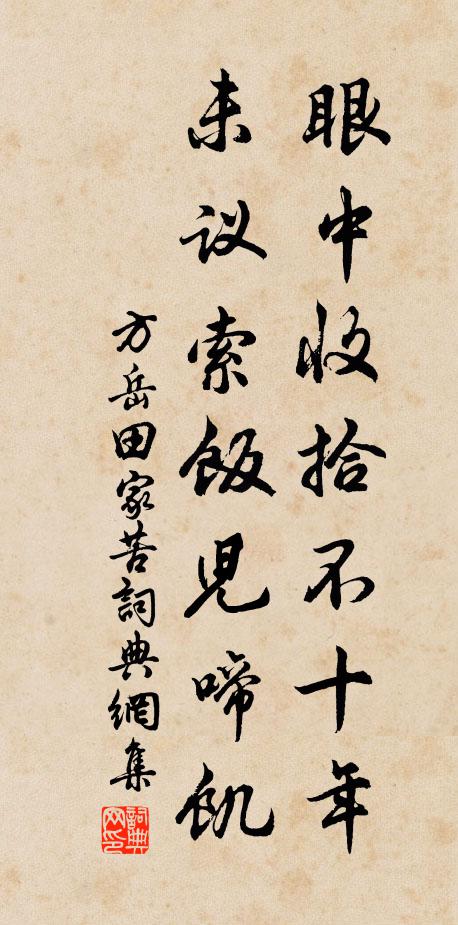 眼中收拾不十年
未议索飯兒啼飢
方岳田家苦詞典網集
詞典网印